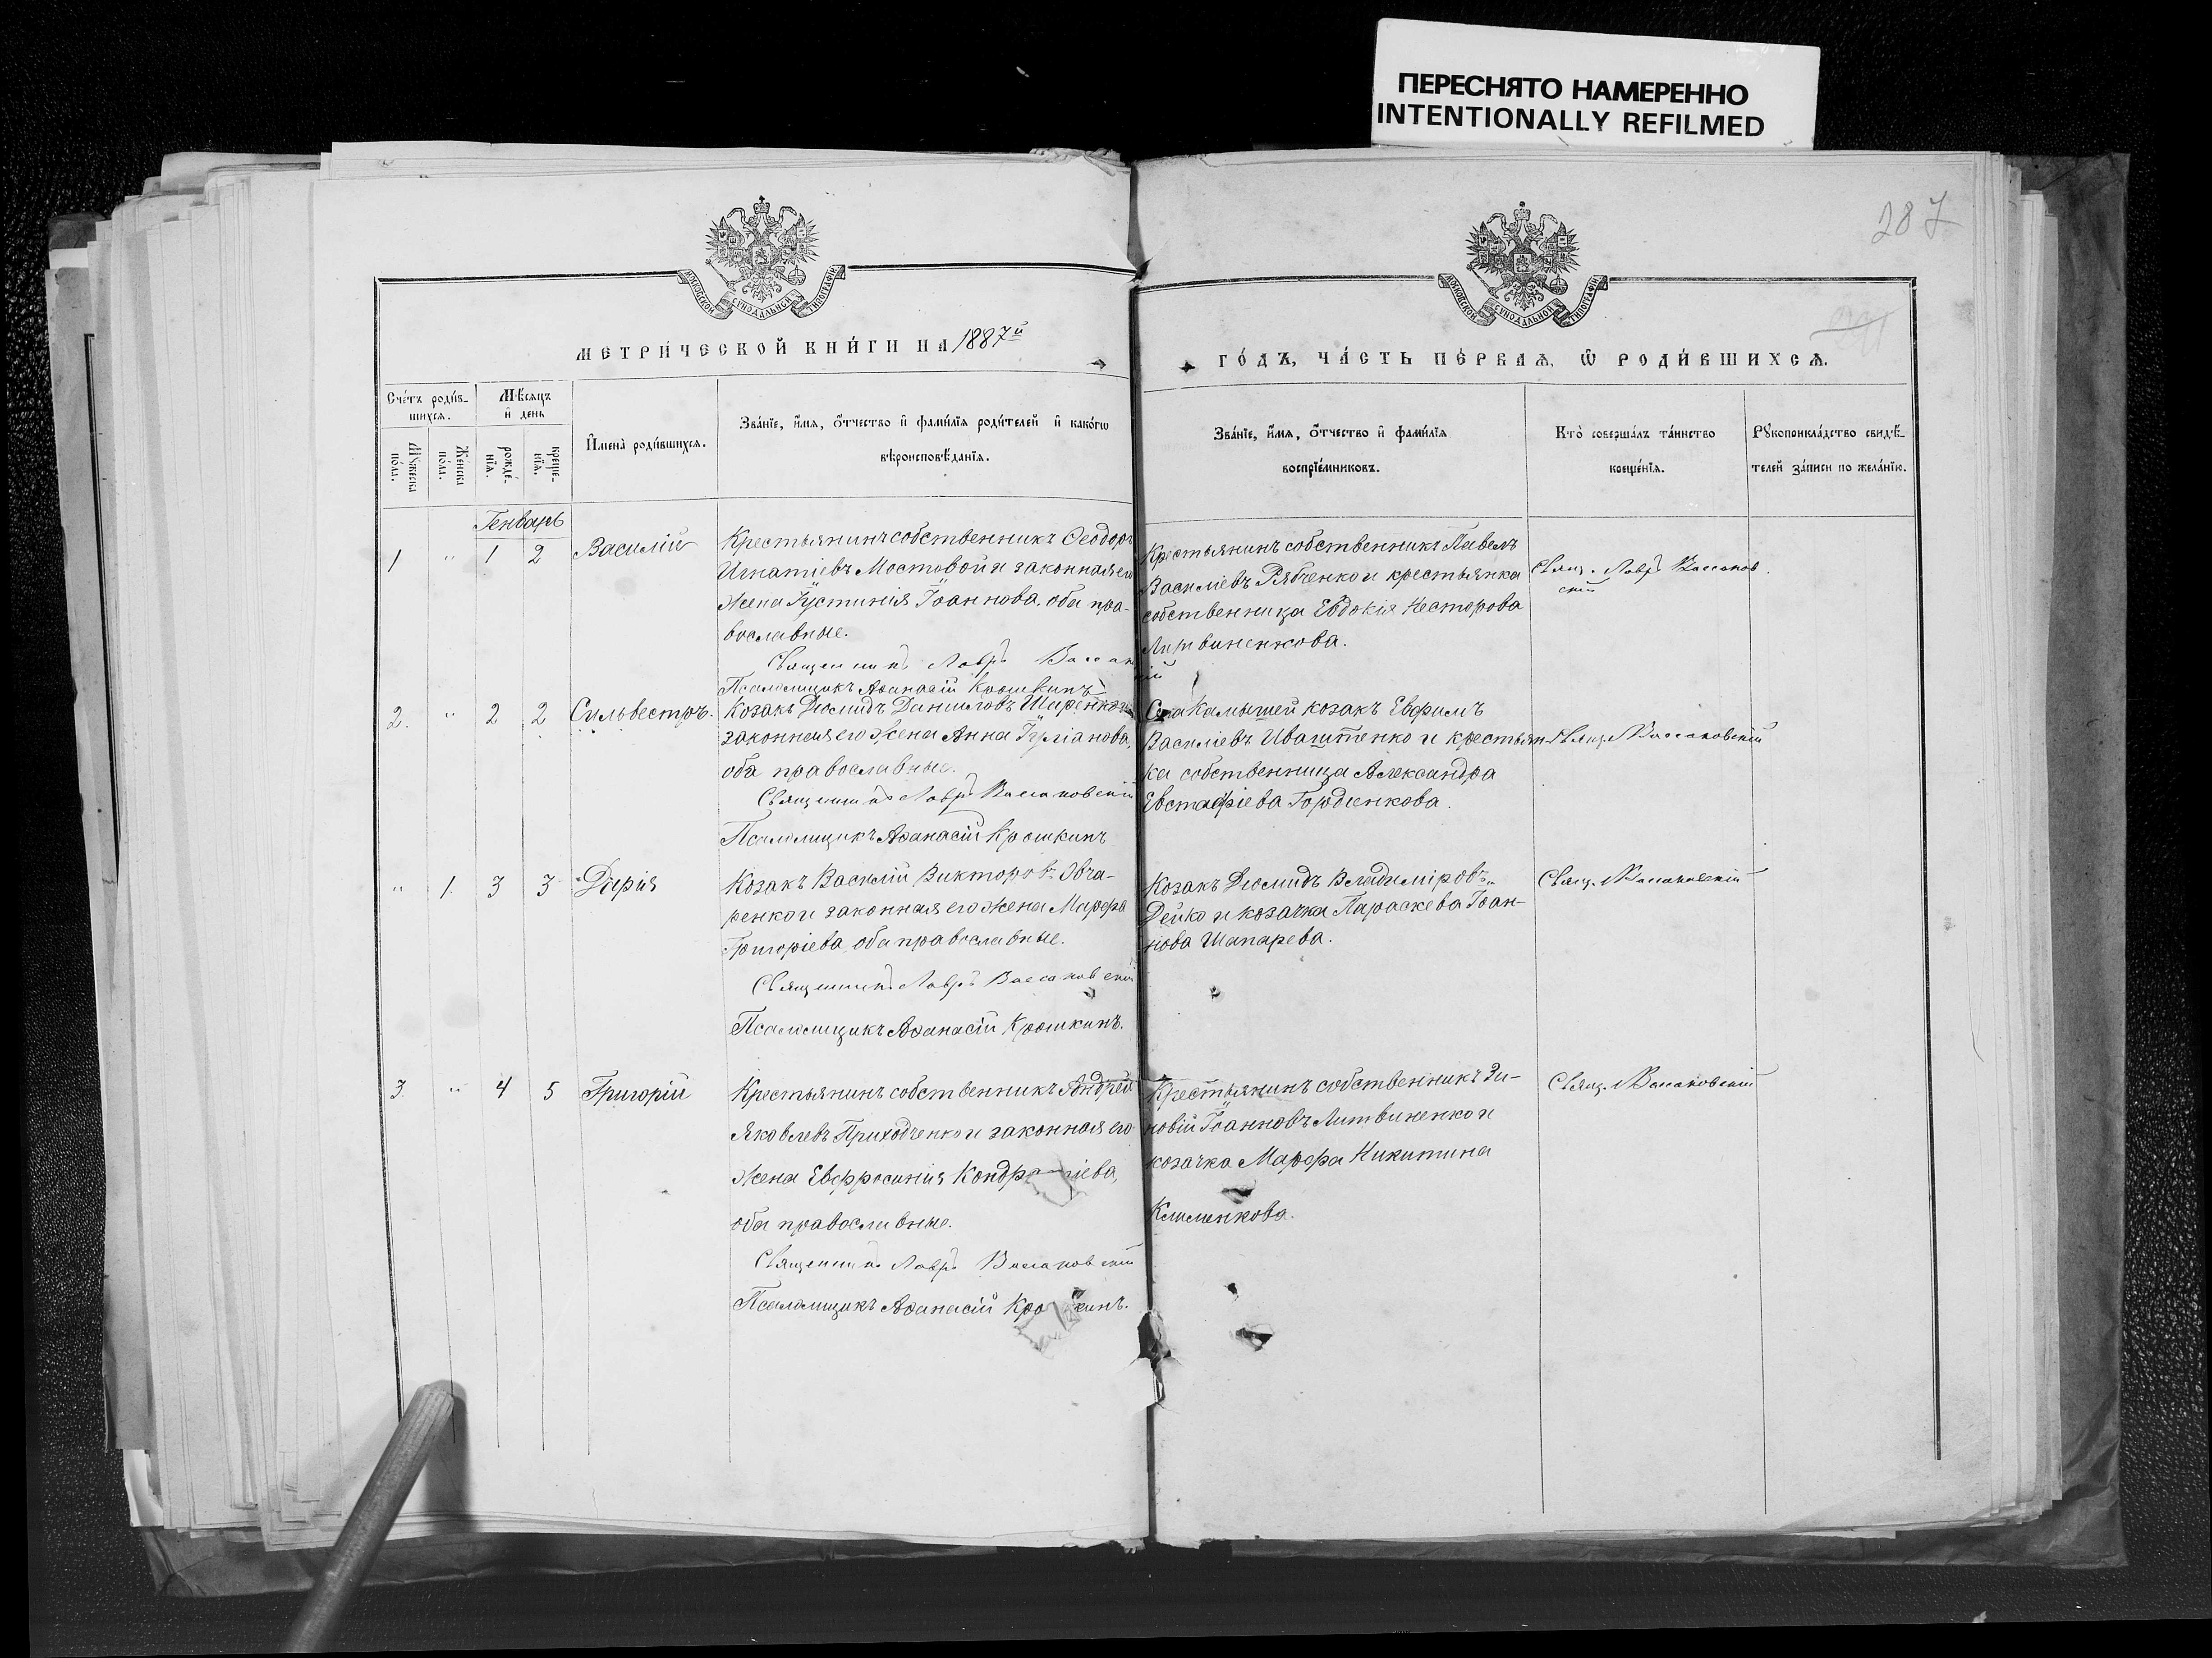 ПЕРЕСНЯТО НАМЕРЕННО
INTENTIONALLY REFILMED
287
МОСКОВСКОЙ СѴНОДАЛЬНОЙ ТИПОГРАФІИ
МОСКОВСКОЙ СѴНОДАЛЬНОЙ ТИПОГРАФІИ
МЕТРИ́ЧЕСКОЙ КНИ́ГИ НА 1887й
ГО́ДЪ, ЧА́СТЬ ПЕ́РВАѦ, Ѡ҆ РОДИ́ВШИХСѦ.
Сче́тъ роди́в-
шихсѧ.
Мѣ́сѧцъ
и҆ день
Мꙋ́жеска
по́ла.
Же́нска
по́ла.
рожде́-
нїѧ.
креще́-
нїѧ.
И҆мена̀ роди́вшихсѧ.
Зва́нїе, и҆́мѧ, ѻ҆́тчество и҆ фами́лїѧ роди́телей и҆ како́гѡ
вѣроисповѣ́данїѧ.
Зва́нїе, и҆́мѧ, ѻ҆́тчество и҆ фами́лїѧ
воспрїе́мниковъ.
Кто̀ соверша́лъ та́инство
креще́нїѧ.
Рꙋкоприкла́дство свидѣ́-
телей за́писи по жела́нїю.
Генварь
1 " 1 2 Василій
Крестьянинъ собственникъ Ѳеодоръ
Игнатіевъ Мостовой и законная его
жена Іустинія Іоаннова, оба пра-
вославные.
Священникъ Лавръ
Псаломщикъ Аѳанасій Крошкинъ
Крестьянинъ собственникъ Павелъ
Василіевъ Рябченко и крестьянка
собственница Евдокія Несторова
Литвиненкова.
Свящ. Лавръ Вассанов
скій
2. " 2 2 Сильвестръ.
Козакъ Діомидъ Даниловъ
законная его жена Анна Іуліанова,
оба православные.
Священникъ Лавръ Вассановскій
Псаломщикъ Аѳанасій Крошкинъ
Села Камышей козакъ Евфимъ
Василіевъ Иваштенко и крестьян-
ка собственница Александра
Евстафіева Гордіенкова.
Свящ. Л Вассановскій
" 1. 3 3 Дарія
Козакъ Василій Викторовъ Овча-
ренко и законная его жена Марфа
Григоріева, оба православные.
Священникъ Лавръ Вассановскій
Псаломщикъ Аѳанасій Крошкинъ.
Козакъ Діомидъ Владиміровъ
Дейко и козачка Параскева Іоан-
нова Шапарева.
Свящ. Л Вассановскій
3. " 4 5 Григорій
Крестьянинъ собственникъ Андрей
Яковлевъ Приходченко и законная его
жена Евфросинія Кондратіева,
оба православные.
Священникъ Лавръ Вассановскій
Псаломщикъ Аѳанасій Крошкинъ.
Крестьянинъ собственникъ Зи-
новій Іоанновъ Литвиненко и
козачка Марфа Никитина
Клименкова.
Свящ. Л Вассановскій